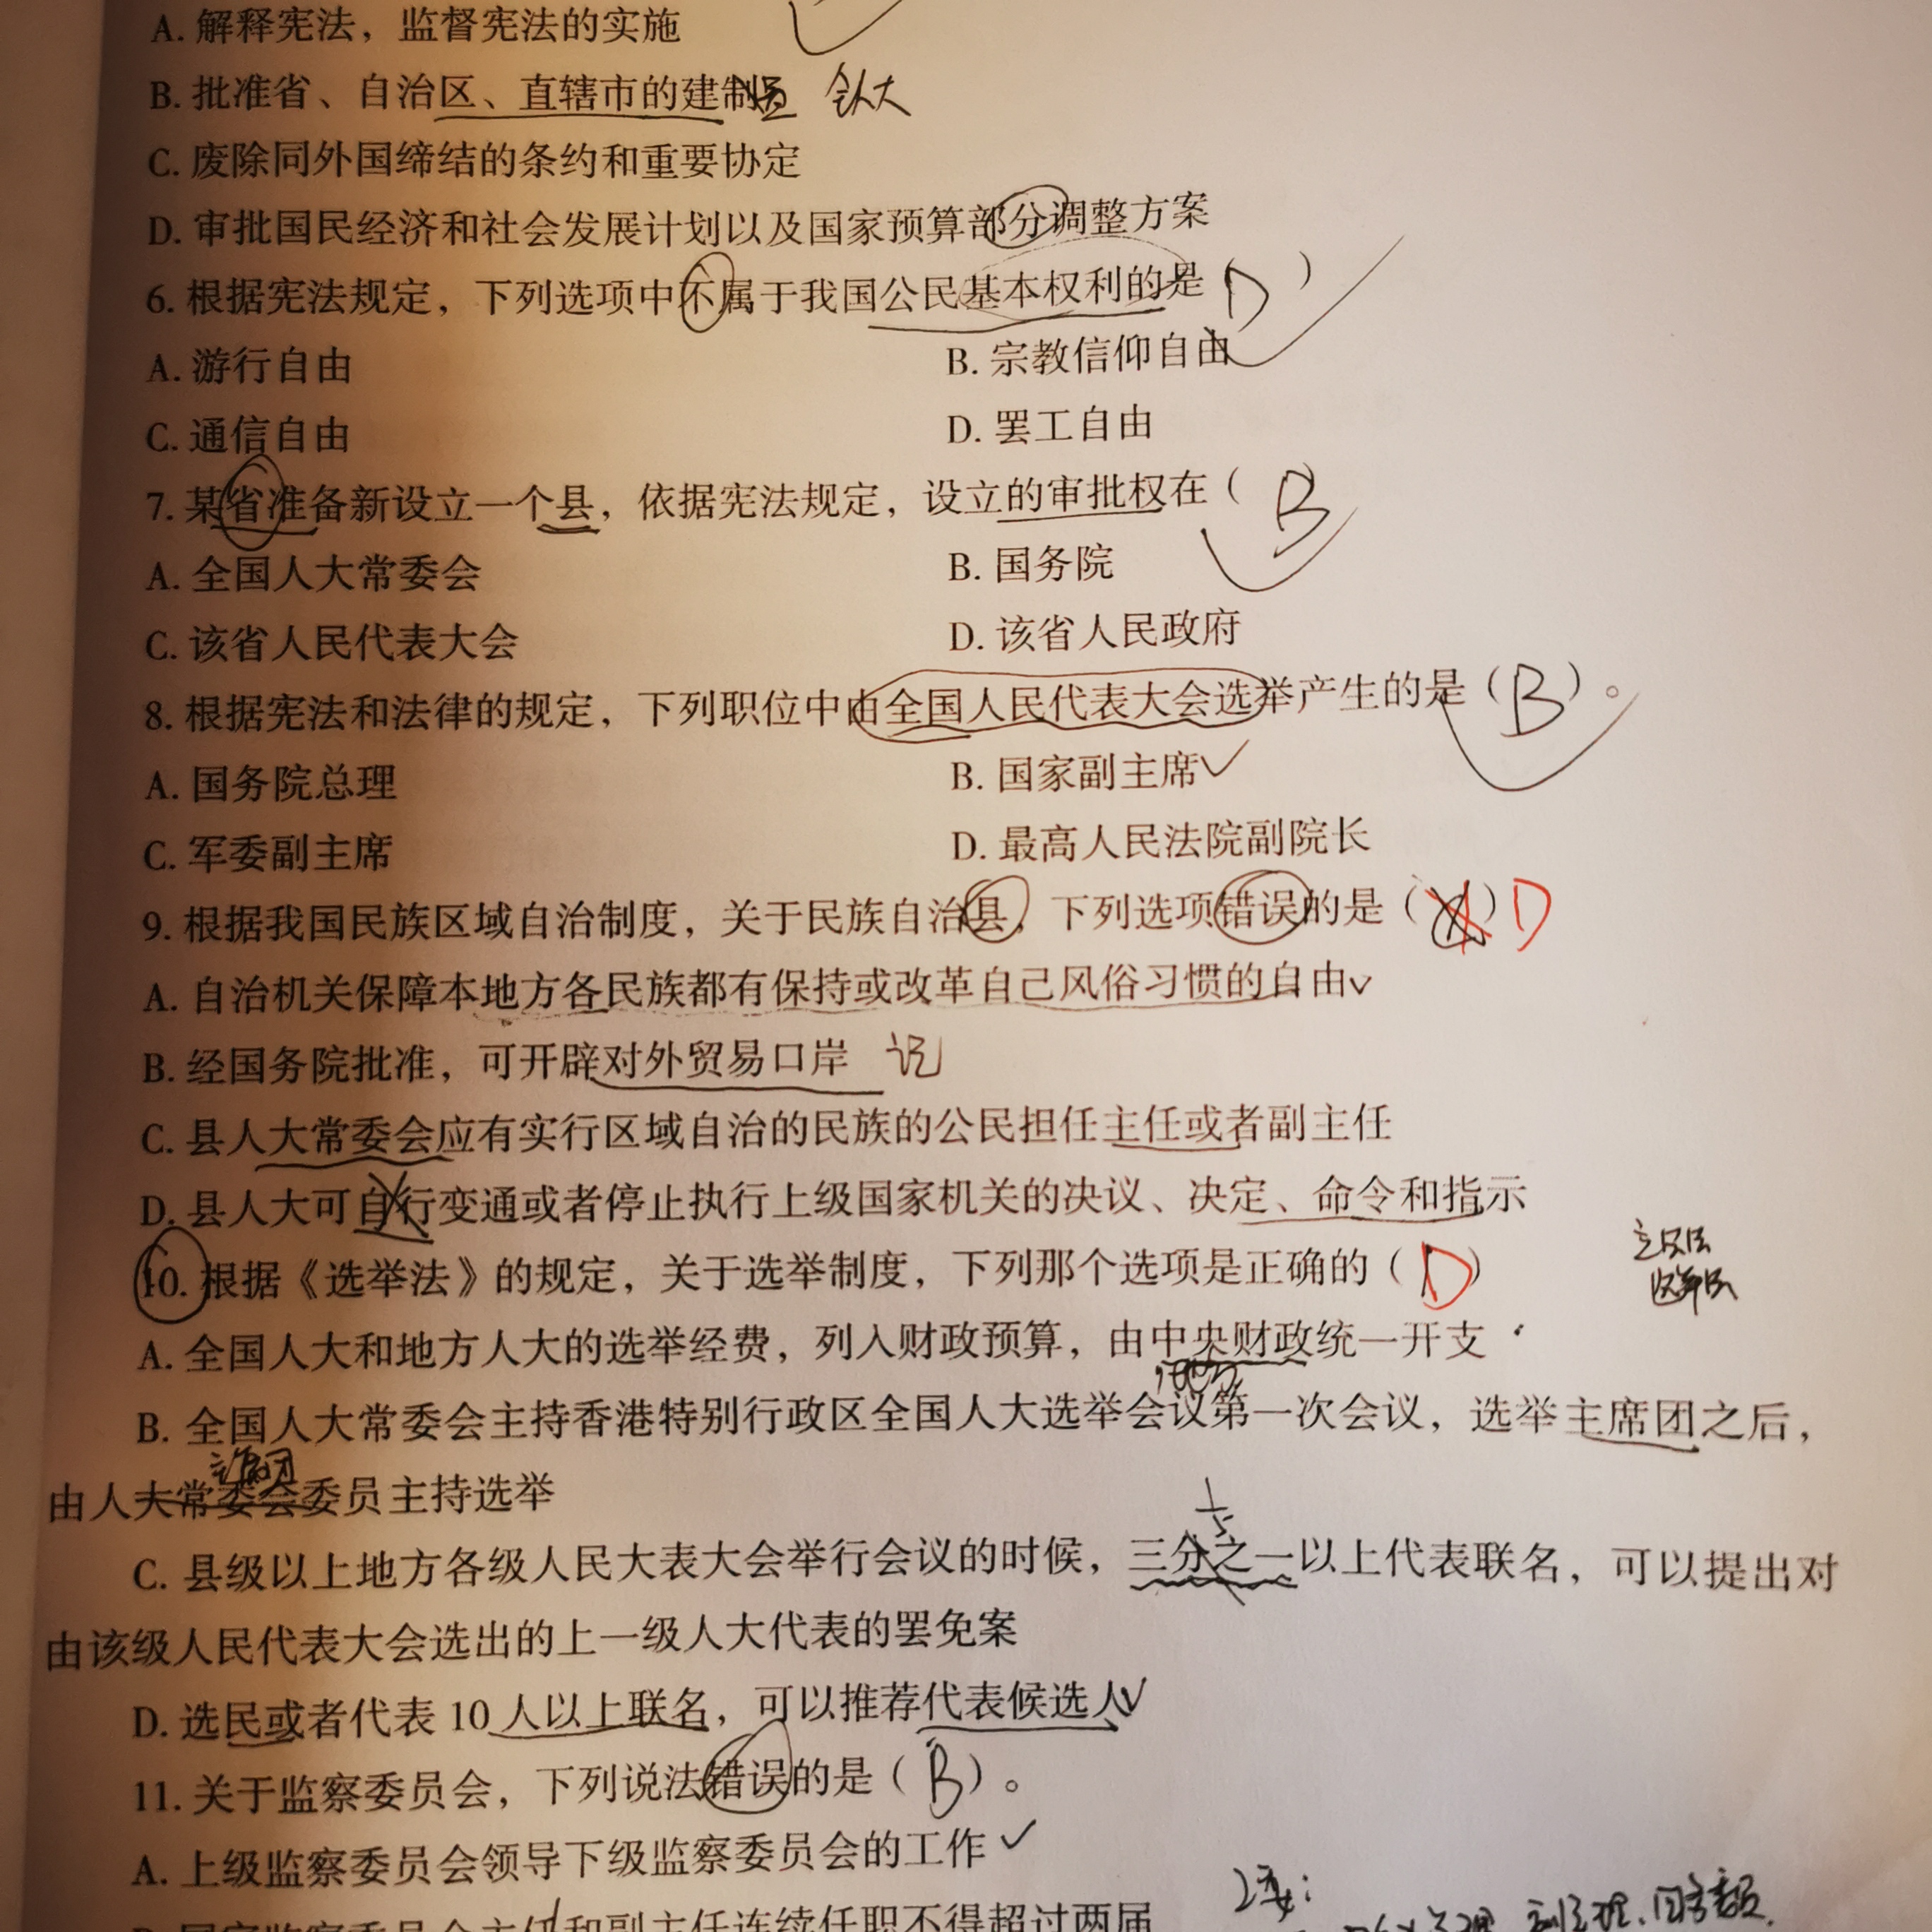 A. 解释宪法，监督宪法的实施
B. 批准省、自治区、直辖市的建制 全人大
C. 废除同外国缔结的条约和重要协定
D. 审批国民经济和社会发展计划以及国家预算部分调整方案
6. 根据宪法规定，下列选项中不属于我国公民基本权利的是（D）
A. 游行自由 B. 宗教信仰自由
C. 通信自由 D. 罢工自由
7. 某省准备新设立一个县，依据宪法规定，设立的审批权在（B
A. 全国人大常委会 B. 国务院
C. 该省人民代表大会 D. 该省人民政府
8. 根据宪法和法律的规定，下列职位中由全国人民代表大会选举产生的是（B）。
A. 国务院总理 B. 国家副主席✓
C. 军委副主席 D. 最高人民法院副院长
9. 根据我国民族区域自治制度，关于民族自治县，下列选项错误的是（ ）D
A. 自治机关保障本地方各民族都有保持或改革自己风俗习惯的自由✓
B. 经国务院批准，可开辟对外贸易口岸 记
C. 县人大常委会应有实行区域自治的民族的公民担任主任或者副主任
D. 县人大可自行变通或者停止执行上级国家机关的决议、决定、命令和指示
10. 根据《选举法》的规定，关于选举制度，下列那个选项是正确的（D）
A. 全国人大和地方人大的选举经费，列入财政预算，由中央财政统一开支
B. 全国人大常委会主持香港特别行政区全国人大选举会议第一次会议，选举主席团之后，
主席团
由人大常委会委员主持选举
1/5
C. 县级以上地方各级人民大表大会举行会议的时候，三分之一以上代表联名，可以提出对
由该级人民代表大会选出的上一级人大代表的罢免案
D. 选民或者代表 10 人以上联名，可以推荐代表候选人✓
11. 关于监察委员会，下列说法错误的是（B）。
A. 上级监察委员会领导下级监察委员会的工作✓
B. 国家监察委员会主任和副主任连续任职不得超过两届